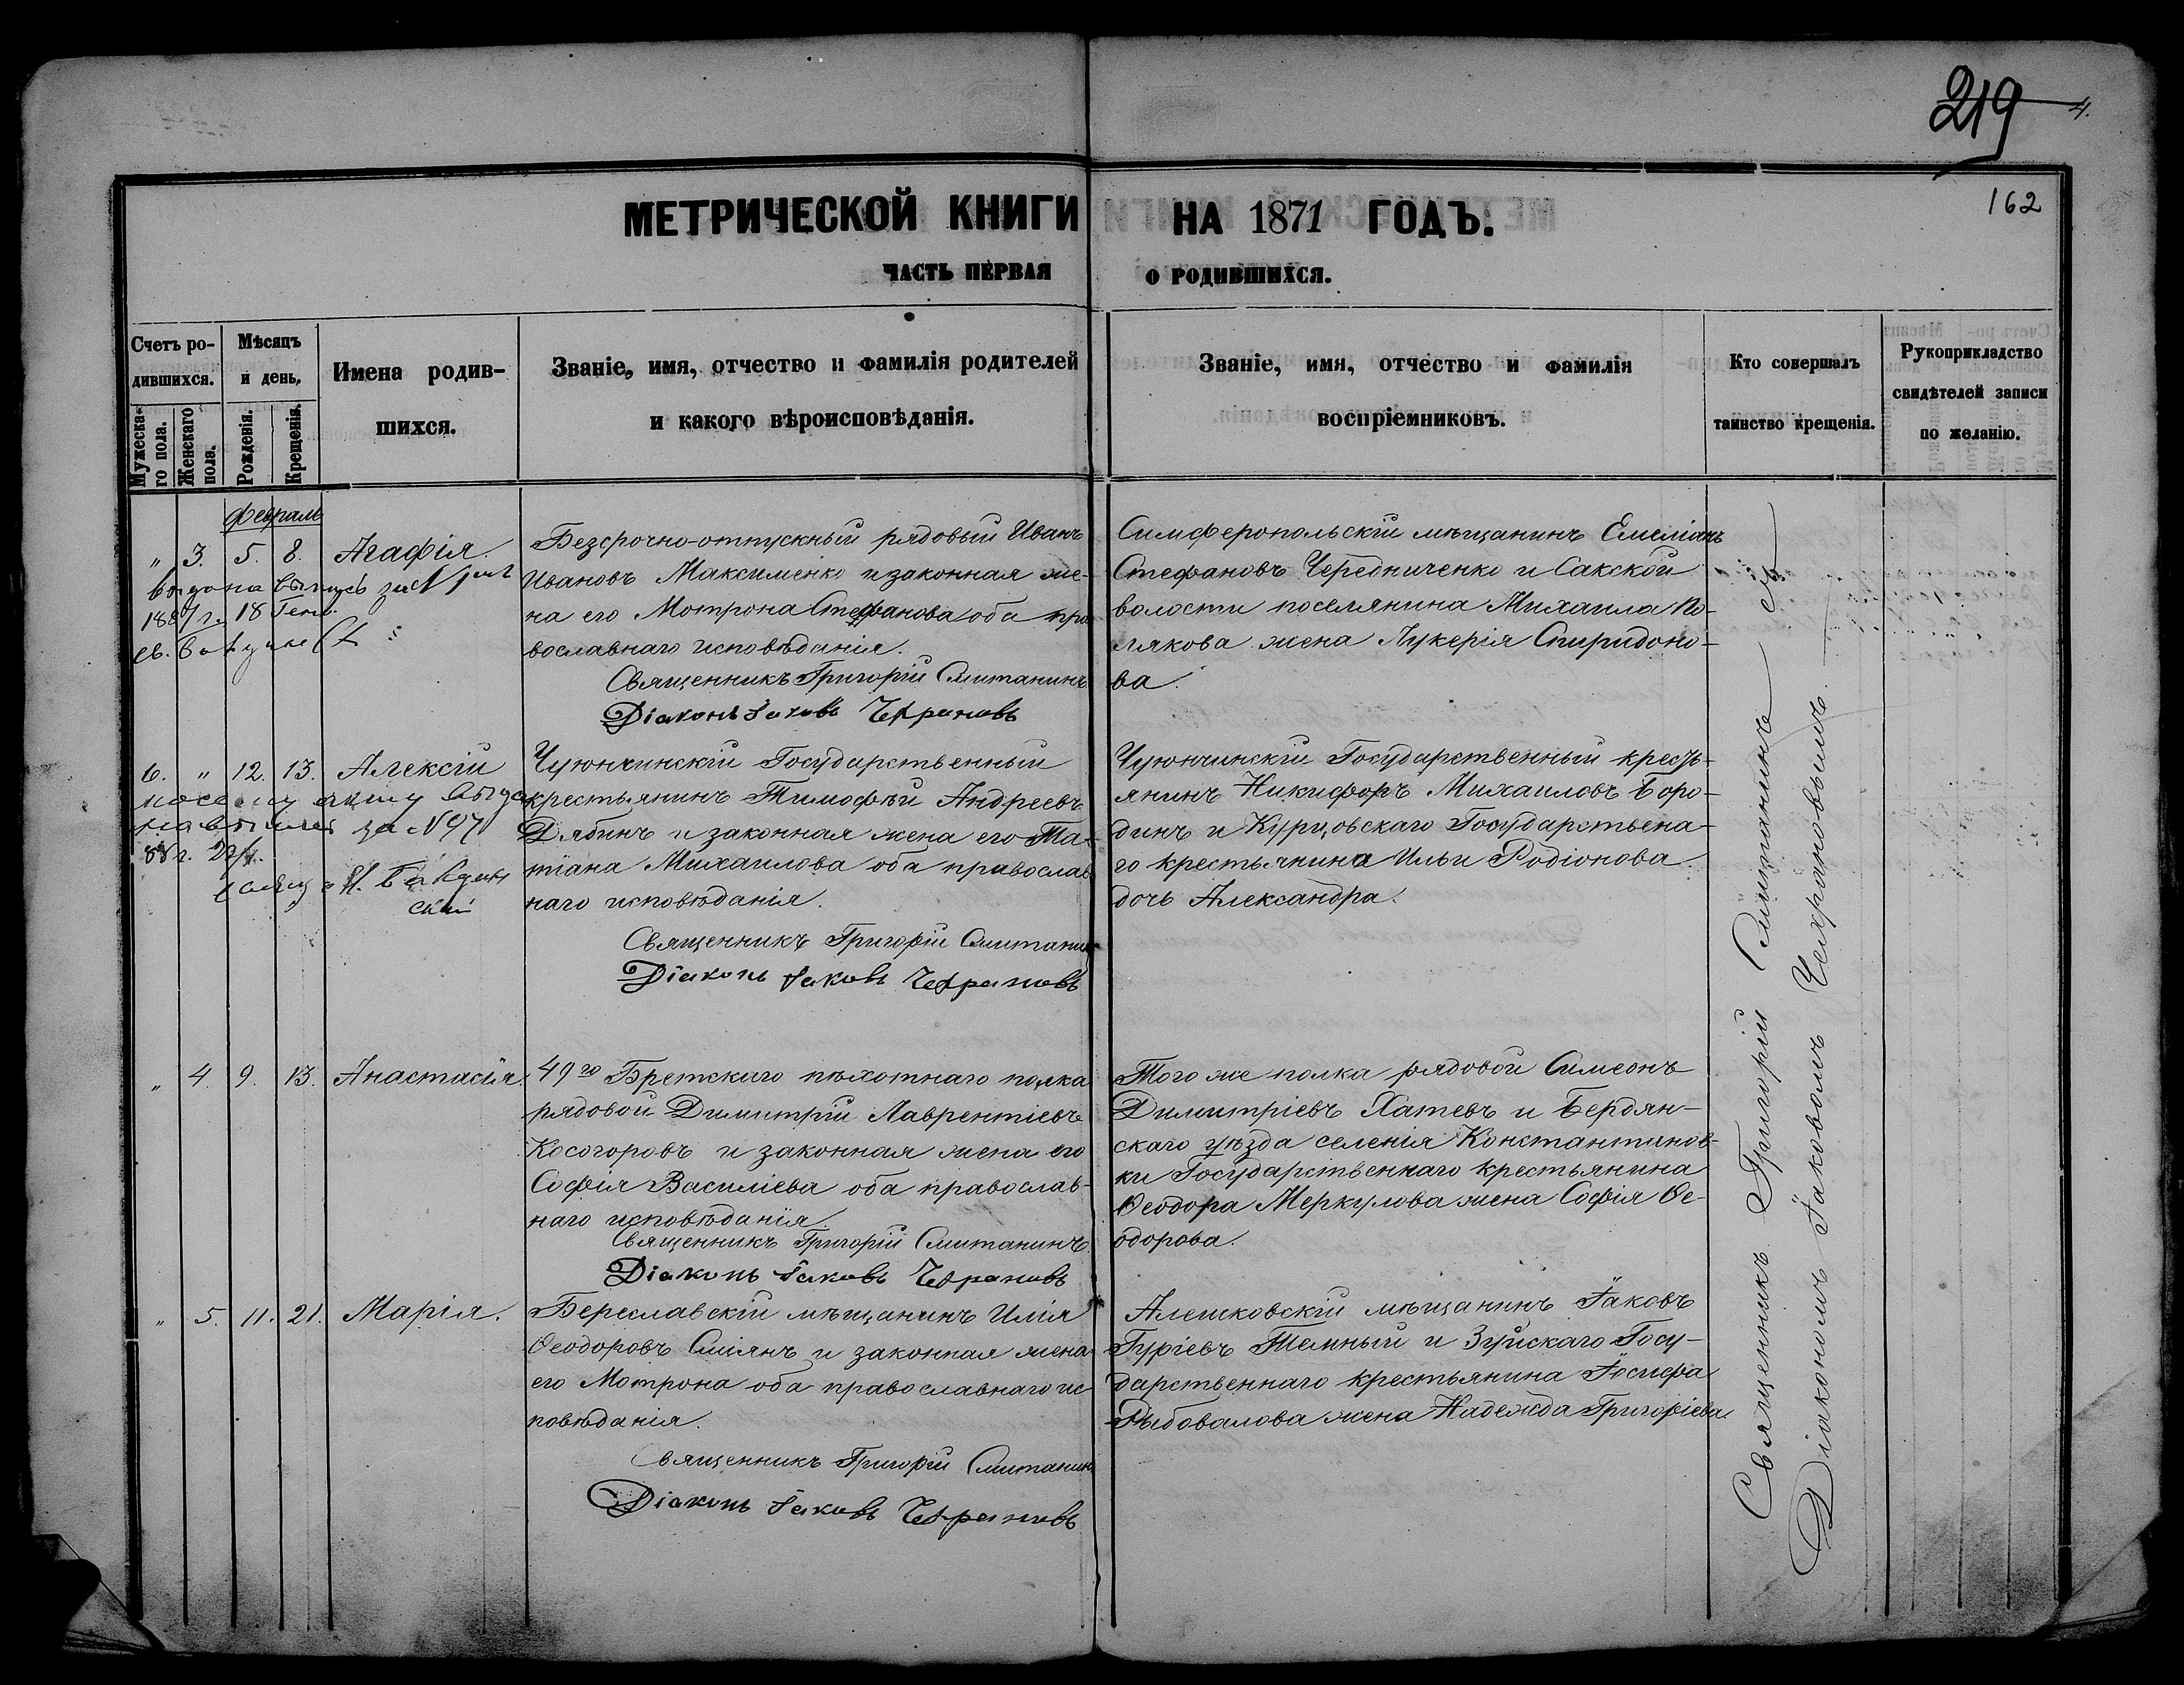 219 4.
162
МЕТРИЧЕСКОЙ КНИГИ НА 1871 ГОДЪ.
ЧАСТЬ ПЕРВАЯ О РОДИВШИХСЯ.
Счетъ родившихся.
Мужескаго пола.
Женскаго пола.
Мѣсяцъ и день.
Рожденія.
Крещенія.
Имена родившихся.
Званіе, имя, отчество и фамилія родителей
и какого вѣроисповѣданія.
Званіе, имя, отчество и фамилія
воспріемниковъ.
Кто совершалъ
таинство крещенія.
Рукоприкладство
свидѣтелей записи
по желанію.
Февраль
" 3. 5. 8. Агафія.
Безсрочно-отпускный рядовый Иванъ
Ивановъ Максименко и законная же-
на его Мотрона Стефанова оба пра
вославнаго исповѣданія.
Священникъ Григорій Смитанинъ
Діаконъ Іаковъ Чехрановъ
Симферопольскій мѣщанинъ Емеліанъ
Стефановъ Чередниченко и Сакской
волости поселянина Михаила По-
лякова жена Лукерія Спиридоно-
ва.
18 Генв.
6. " 12. 13. Алексій
за N 97
Чуюнчинскій Государственный
крестьянинъ Тимофѣй Андреевъ
Дябинъ и законная жена его Та-
тіана Михаилова оба православ
наго исповѣданія.
Священникъ Григорій Смитанинъ
Діаконъ Іаковъ Чехрановъ
Чуюнчинскій Государственный кресть-
янинъ Никифоръ Михаиловъ Боро-
динъ и Курцовскаго Государствена-
го крестьянина Ильи Родіонова
дочь Александра.
" 4. 9. 13. Анастасія.
49го Бретскаго пѣхотнаго полка
рядовой Димитрій Лаврентіевъ
Косогоровъ и законная жена его
Софія Василіева оба православ-
наго исповѣданія.
Священникъ Григорій Смитанинъ
Діаконъ Іаковъ Чехрановъ
Того же полка рядовой Симеонъ
Димитріевъ Хатевъ и Бердян-
скаго уѣзда селенія Константинов-
ки Государственнаго крестьянина
Ѳеодора Меркулова жена Софія Ѳе-
одорова.
" 5. 11. 21. Марія.
Бериславскій мѣщанинъ Илія
Ѳеодоровъ Сміянъ и законная жена
его Мотрона оба православнаго ис
повѣданія.
Священникъ Григорій Смитанинъ
Діаконъ Іаковъ Чехрановъ
Алешковскій мѣщанинъ Іаковъ
Гуріевъ Темный и Зуйскаго Госу-
дарственнаго крестьянина Іосифа
Рыбовалова жена Надежда Григоріева.
Священникъ Григорій Смитанинъ съ
Діакономъ Іаковомъ Чехрановымъ.